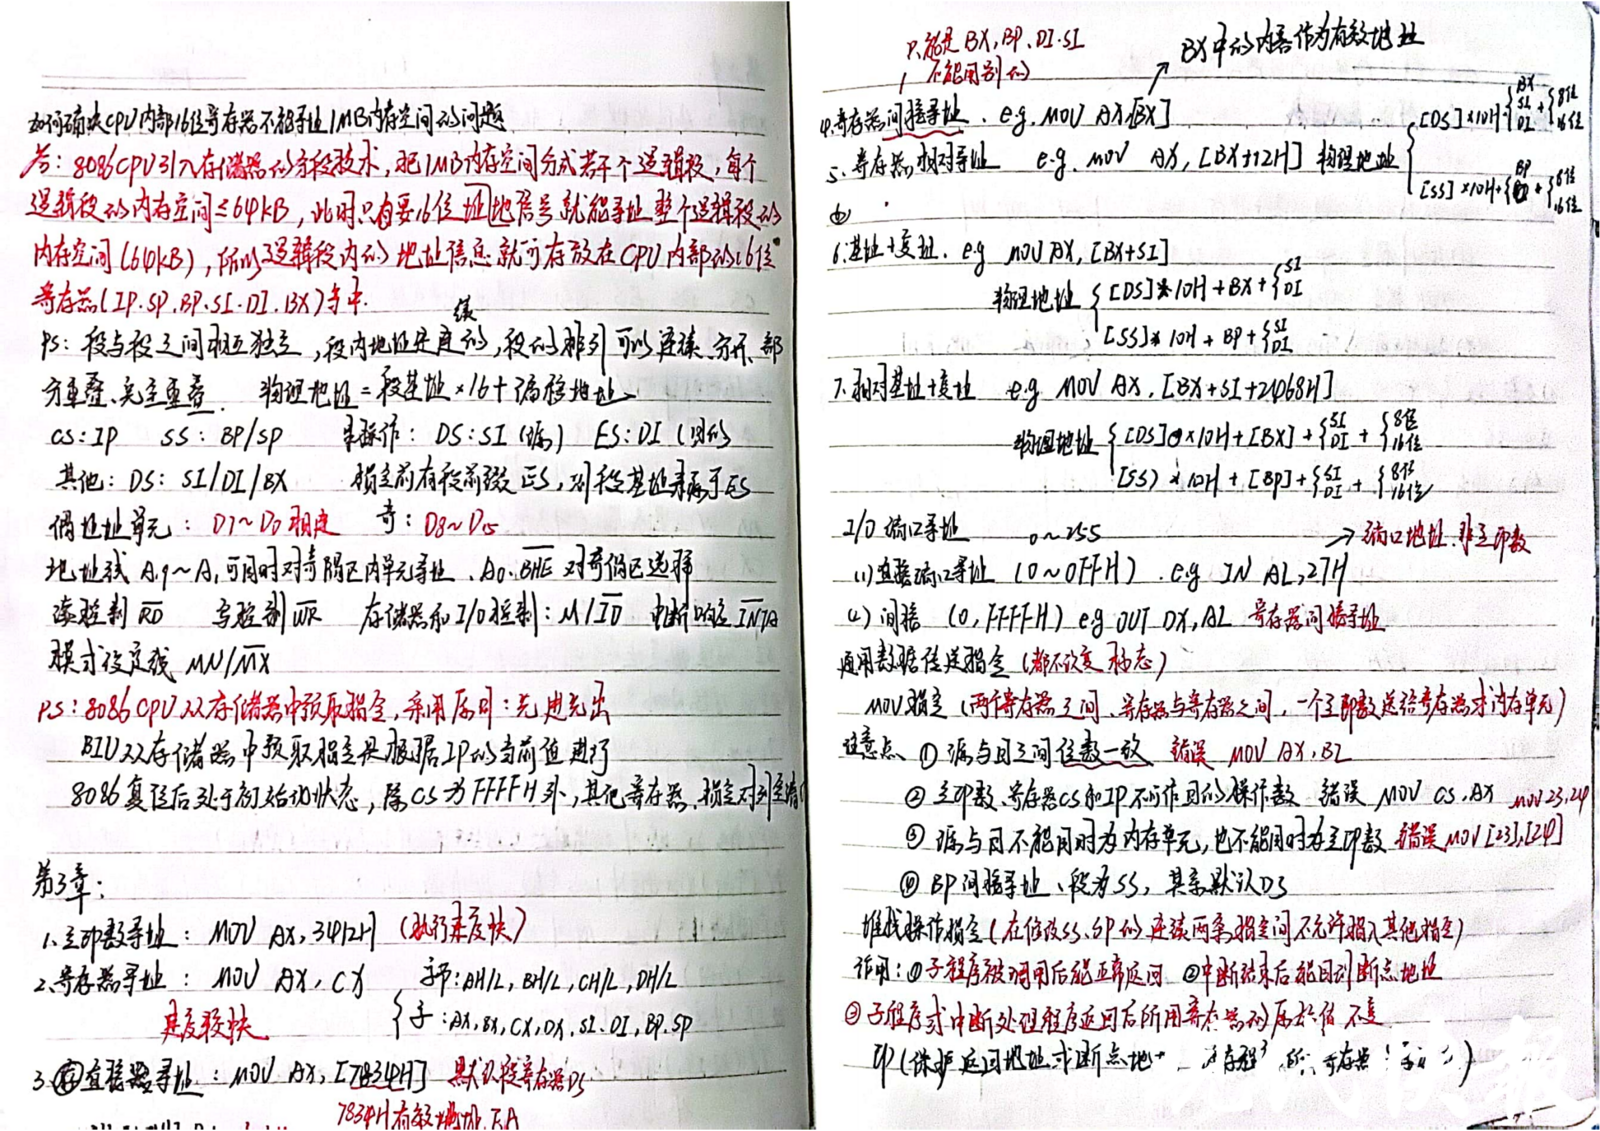 如何解决CPU内部16位寄存器不能寻址1MB内存空间的问题
答：8086CPU引入存储器的分段技术，把1MB内存空间分成若干个逻辑段，每个
逻辑段的内存空间≤64KB，此时只有要16位地址信号就能寻址整个逻辑段的
内存空间(64KB)，所以逻辑段内的地址信息就可存放在CPU内部的16位
寄存器(IP.SP.BP.SI.DI.BX)等中.
PS：段与段之间相互独立，段内地址是连续的，段的排列可以连续、分开、部
分重叠、完全重叠. 物理地址=段基址×16+偏移地址
CS:IP SS:BP/SP 串操作：DS:SI(源) ES:DI(目的
其他：DS：SI/DI/BX 指定前有段前缀ES，则段基址来源于ES
偶地址单元：D7~D0 奇：D8~D15
地址线A19~A1可同时对奇偶区内单元寻址、A0、BHE对奇偶区选择
读控制RD 写控制WR 存储器和I/O控制：M/IO 中断响应INTA
模式设定线MN/MX
PS：8086CPU从存储器中预取指令，采用原则：先进先出
BIU从存储器中预取指令是根据IP的当前值进行
8086复位后处于初始化状态，除CS为FFFFH外，其他寄存器、指令队列全清
第3章：
1.立即数寻址：MOV AX,3412H (执行速度快)
2.寄存器寻址：MOV AX,CX 字节：AH/L,BH/L,CH/L,DH/L
速度较快 字：AX,BX,CX,DX,SI.DI,BP.SP
3.直接寻址：MOV AX,[7834H] 默认段寄存器DS
7834H有效地址EA
只能是BX,BP.DI.SI
不能用别的
BX中的内容作为有效地址
4.寄存器间接寻址. e.g. MOV AX[BX]
5.寄存器相对寻址 e.g. MOV AX,[BX+12H] 物理地址 { [DS]×10H+{BX SI DI+{8位 16位
[SS]×10H+{BP+{8位 16位
6.基址+变址. e.g MOV AX,[BX+SI]
物理地址 { [DS]×10H+BX+{SI DI
[SS]×10H+BP+{SI DI
7.相对基址+变址 e.g MOV AX.[BX+SI+2468H]
物理地址 { [DS]×10H+[BX]+{SI DI+{8位 16位
[SS)×10H+[BP]+{SI DI+{8位 16位
I/O端口寻址 0~255 → 端口地址.非立即数
(1)直接端口寻址 (0~0FFH). e.g IN AL,27H
(2)间接 (0,FFFFH) e.g OUT DX,AL 寄存器间接寻址
通用数据传送指令(都不改变标志)
MOV指令(两个寄存器之间、寄存器与寄存器之间,一个立即数送给寄存器或内存单元)
注意点 ①源与目之间位数一致 错误 MOV AX,BL
②立即数、寄存器CS和IP不可作目的操作数 错误 MOV CS,AX MOV 23,24
③源与目不能同时为内存单元,也不能同时为立即数 错误 MOV[23],[24]
④BP间接寻址、段为SS,其余默认DS
堆栈操作指令(在修改SS.SP的连续两条指令间不允许插入其他指令)
作用：①子程序被调用后能正常返回 ②中断结束后能回到断点地址
③子程序或中断处理程序返回后所用寄存器的原始值不变
即(保护返回地址或断点地